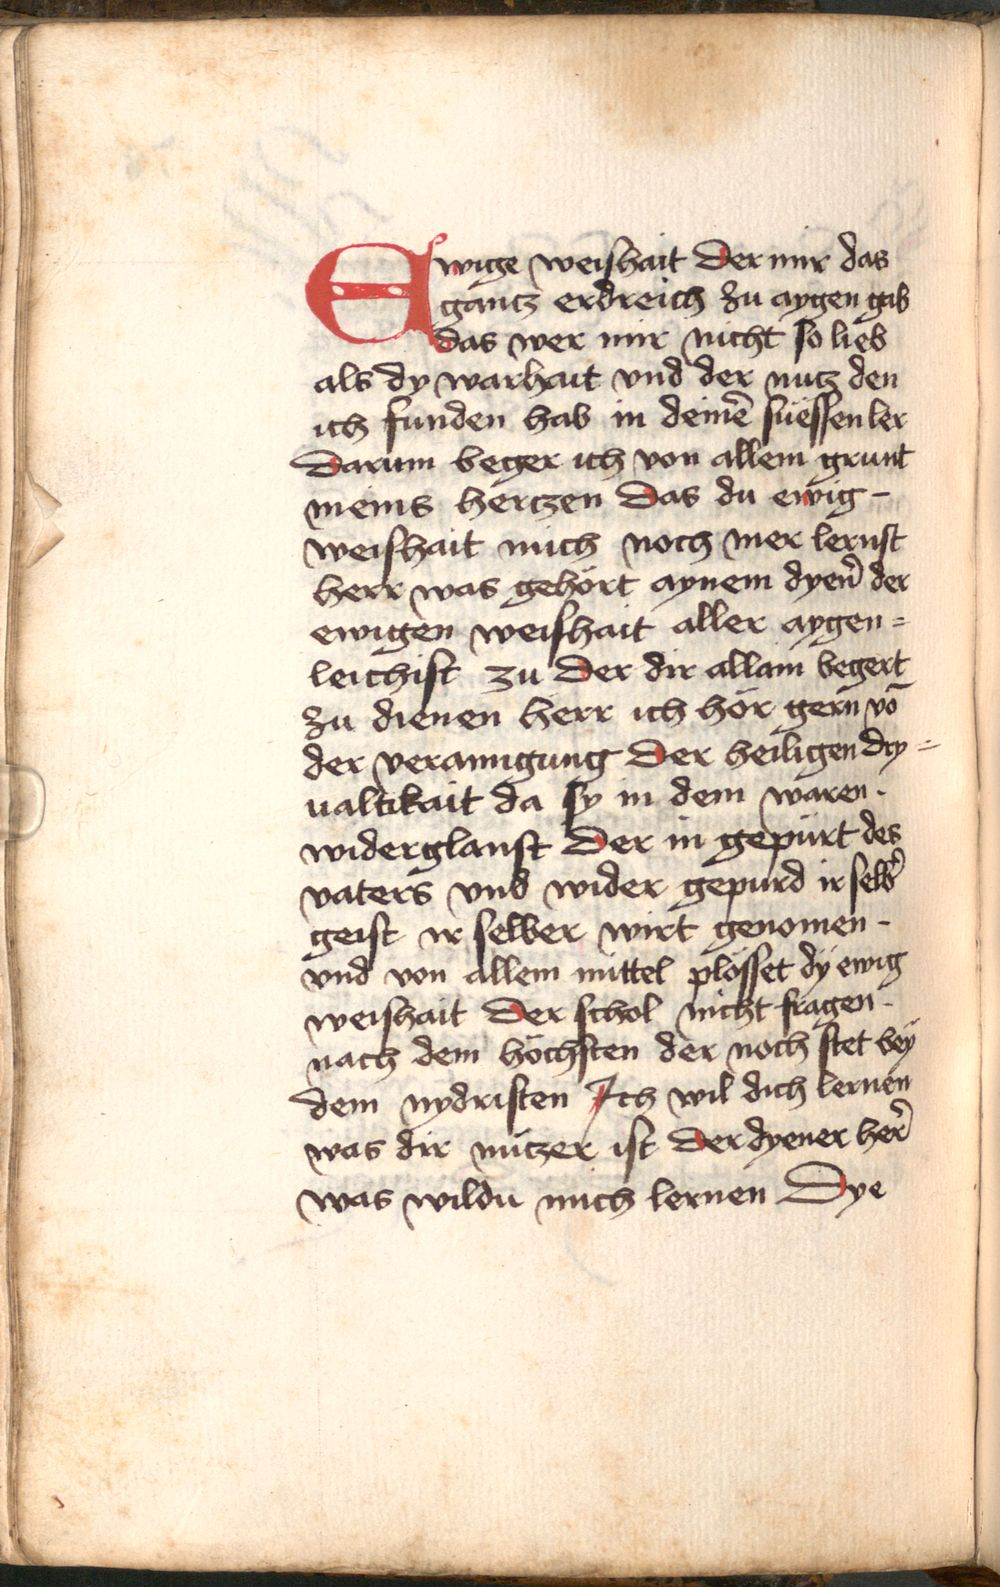 Ewige weishait Der mir das
gantz erdreich zu aygen gab
das wer mir nicht so lieb
als dy warhait vnd der nutz den
ich funden hab in deinē süessen ler
Darum beger ich von allem grunt
meins hertzen Das du ewig-
weishait mich noch mer lernst
herr was gehört aynem dyen̄ der
ewigen weishait aller aygen=
leichist zu Der dir allain begert
zu dienen herr ich hör gern vō
der verainigung Der heiligen dry=
ualtikait da sy in dem waren.
widerglanst Der in gepürt des
vaters vnd wider gepurd ir selb̄
geist ir selber wirt genomen.
vnd von allem mittel plösset dy ewig
weishait Der schol nicht fragen.
nach dem höchsten der noch stet bey
dem nydristen Ich wil dich lernen
was dir nützer ist Der dyener her̄
was wildu mich lernen Dye